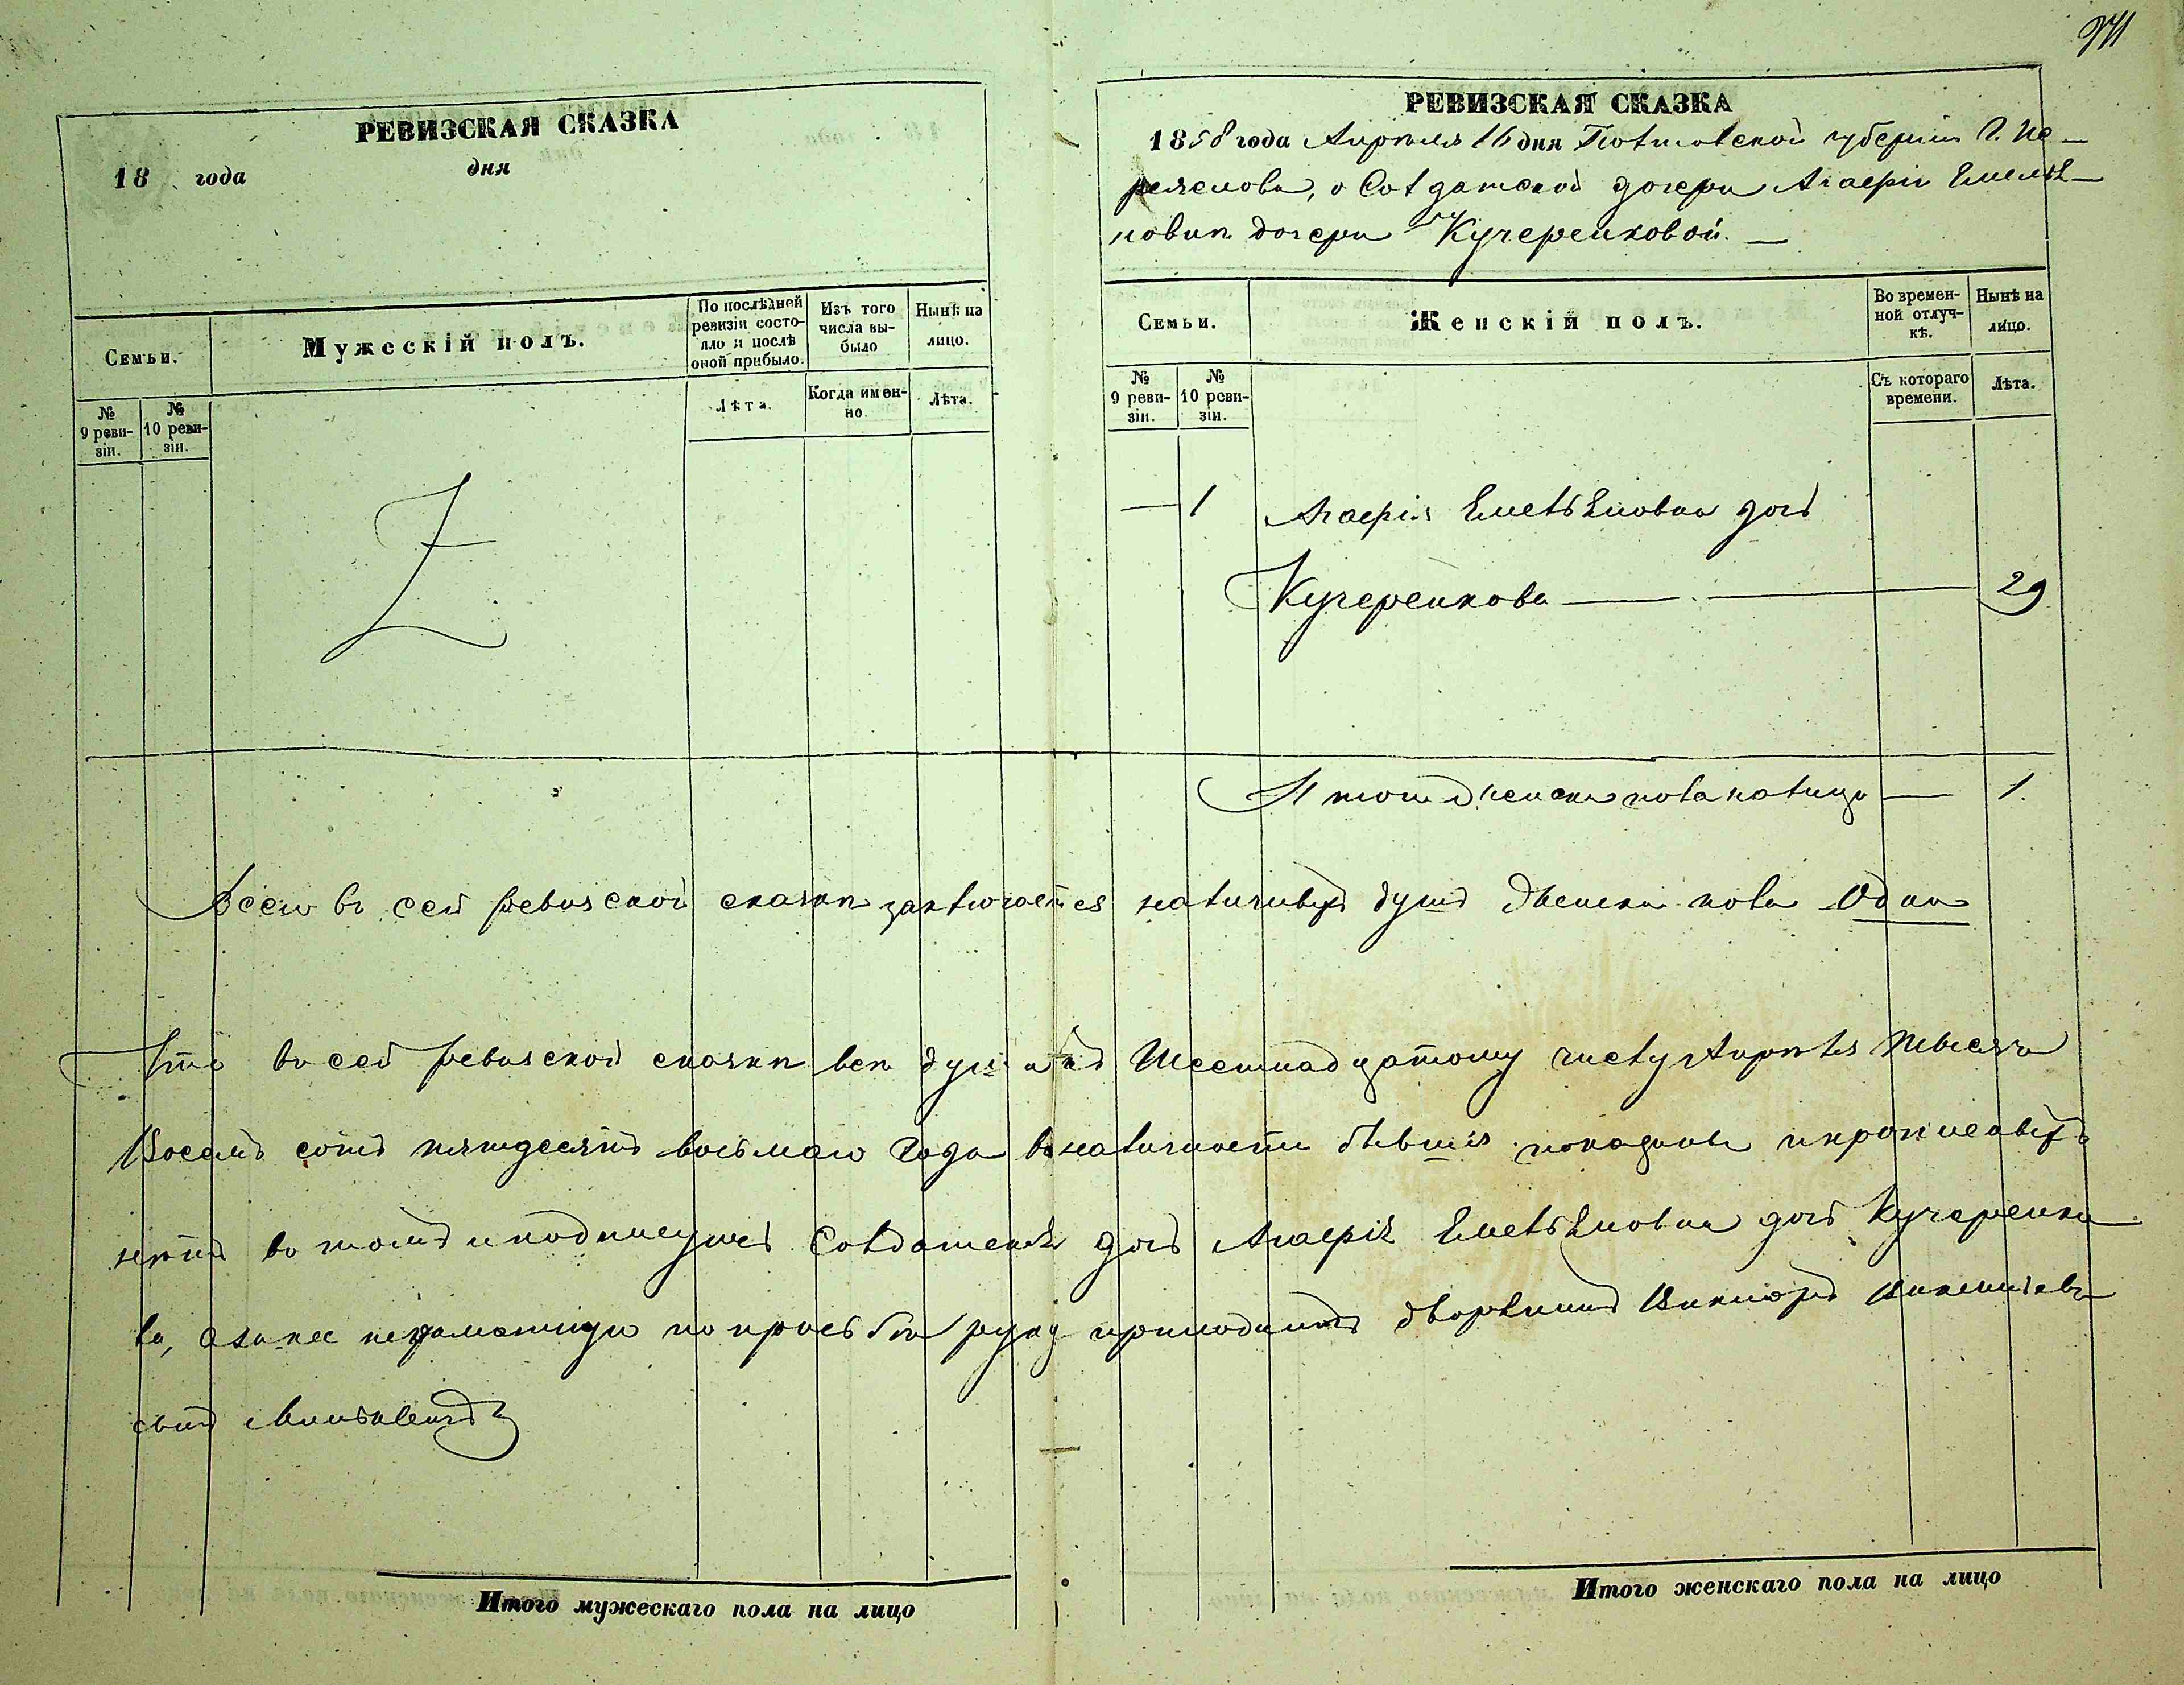 РЕВИЗСКАЯ СКАЗКА
18 года дня
Семьи.
Мужескій полъ.
По послѣдней ревизіи состояло и послѣ оной прибыло.
Изъ того числа выбыло
Нынѣ на лицо.
№ 9 ревизіи.
№ 10 ревизіи.
Лѣта.
Когда именно.
Лѣта.
Итого мужескаго пола на лицо
РЕВИЗСКАЯ СКАЗКА
1858 года Апрѣля 16 дня Полтавской губерніи Г. Пе-
реяслова, о Солдатской дочери Агафіи Емелья-
новѣ дочери Кучеренковой. —
Семьи.
Женскій полъ.
Во временной отлучкѣ.
Нынѣ на лицо.
№ 9 ревизіи.
№ 10 ревизіи.
Съ котораго времени.
Лѣта.
— 1 Агафія Емельянова дочь
Кучеренкова — 29
Итого женска пола налицо — 1.
Всего въ сей ревизской сказкѣ заключается наличныхъ душъ женска пола Одна
Что въ сей ревизской сказкѣ всѣ души къ Шестнадцатому числу Апрѣля тысяча
Восемъ сотъ пятдесятъ восьмого года въ наличности бывшія показаны и прописныхъ
нѣтъ въ томъ и подпишуюсь Солдатская дочь Агафія Емельянова дочь Кучеренко-
ва, а за нее неграмотную по прозьбѣ руку приложилъ дворянинъ Викторъ Викентіевъ
сынъ
Итого женскаго пола на лицо